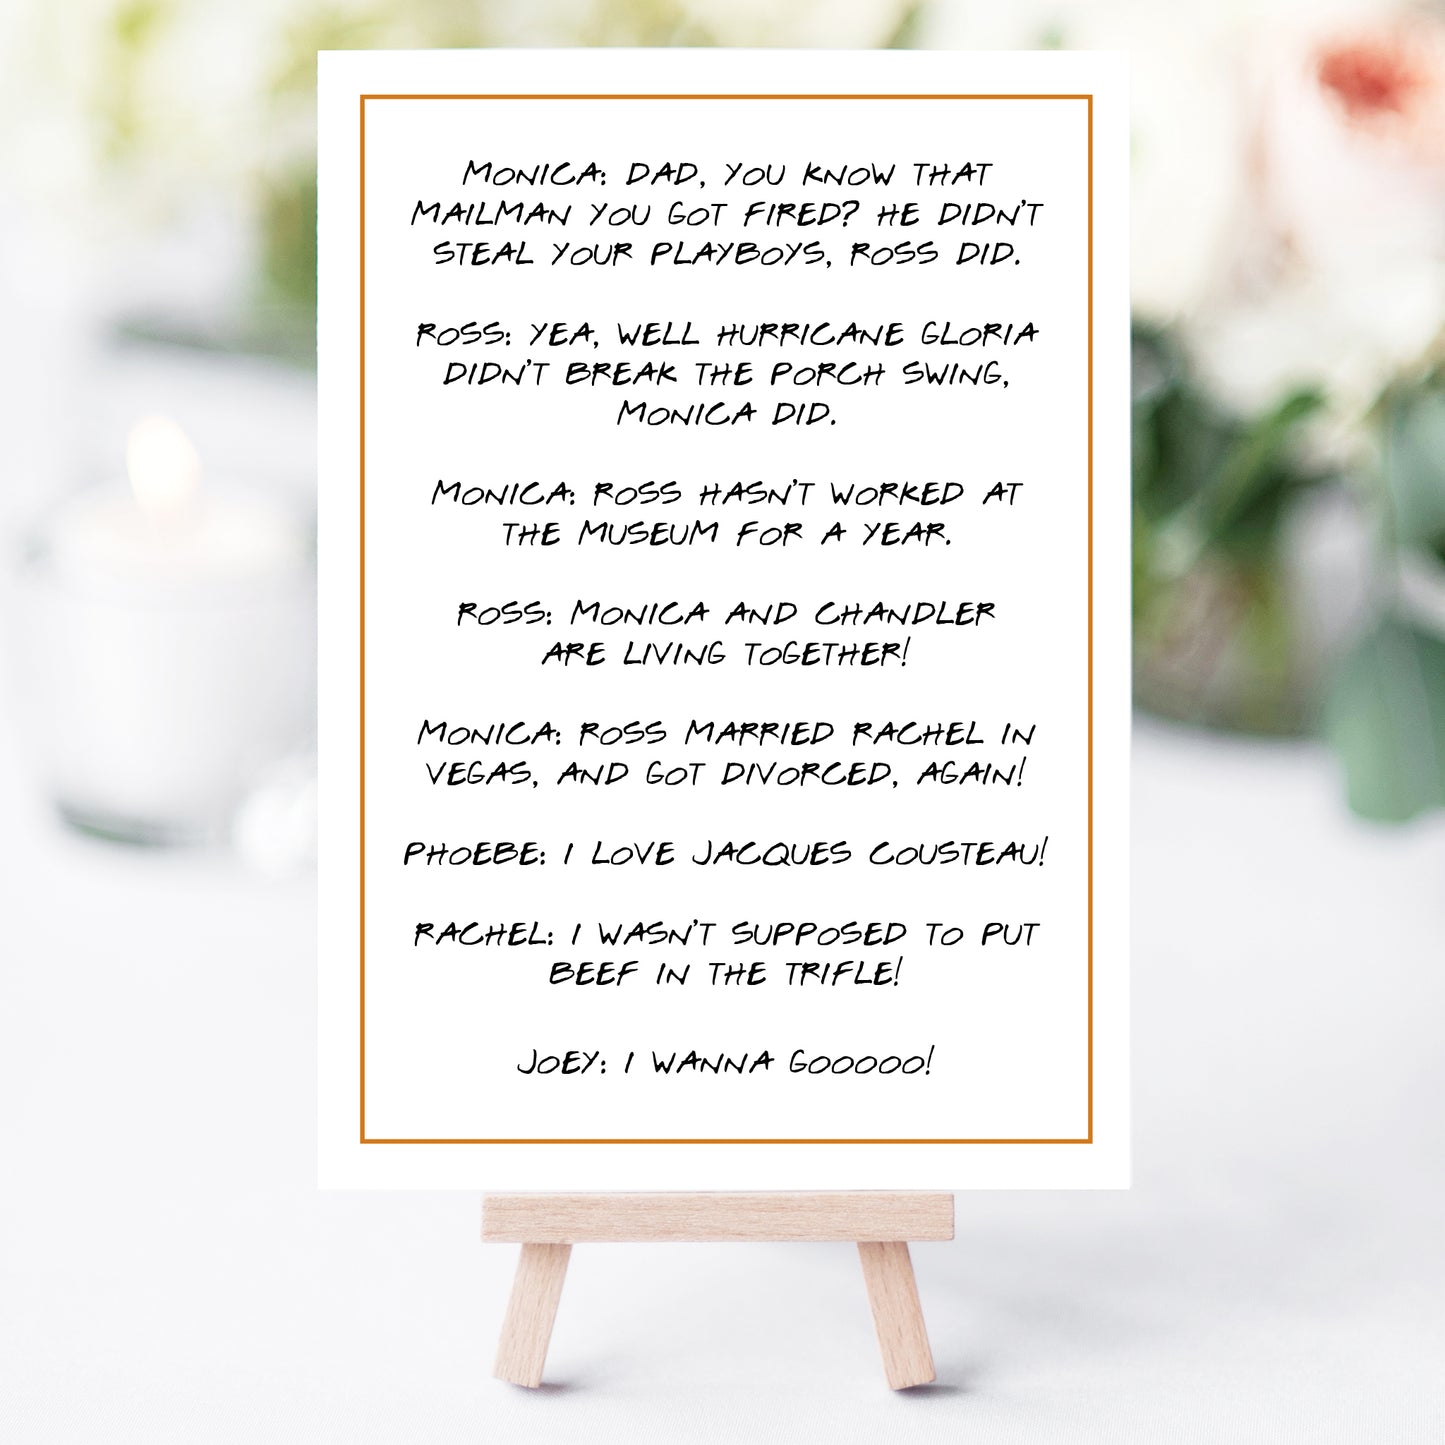 MONICA: DAD, YOU KNOW THAT
MAILMAN YOU GOT FIRED? HE DIDN'T
STEAL YOUR PLAYBOYS, ROSS DID.
ROSS: YEA, WELL HURRICANE GLORIA
DIDN'T BREAK THE PORCH SWING,
MONICA DID.
MONICA: ROSS HASN'T WORKED AT
THE MUSEUM FOR A YEAR.
ROSS: MONICA AND CHANDLER
ARE LIVING TOGETHER!
MONICA: ROSS MARRIED RACHEL IN
VEGAS, AND GOT DIVORCED, AGAIN!
PHOEBE: I LOVE JACQUES COUSTEAU!
RACHEL: I WASN'T SUPPOSED TO PUT
BEEF IN THE TRIFLE!
JOEY: I WANNA GOOOOO!